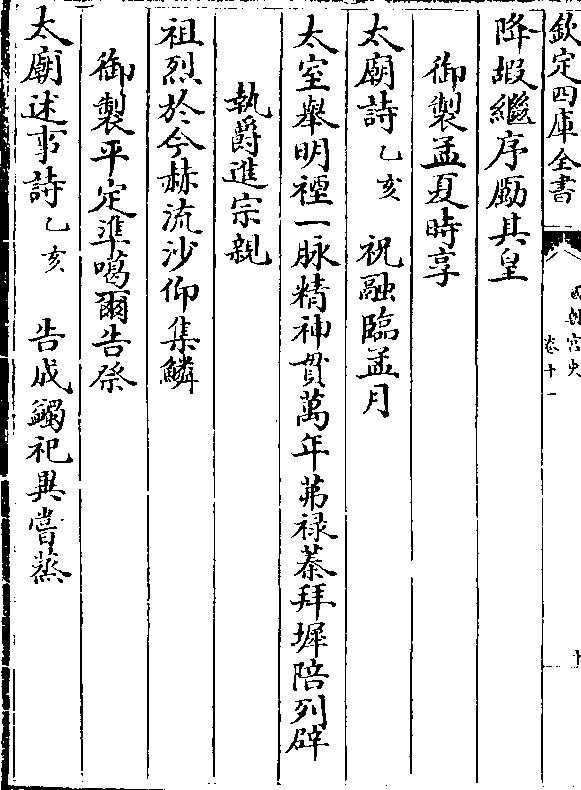 欽定四庫全書
國朝宮史
卷十一
降嘏繼序勵其皇
御製孟夏時享
太廟詩乙亥　祝融臨孟月
太室舉明禋一脉精神貫萬年茀祿蓁拜墀陪列辟
執爵進宗親
祖烈於今赫流沙仰集鱗
御製平定準噶爾告祭
太廟述事詩乙亥　告成蠲祀異嘗烝